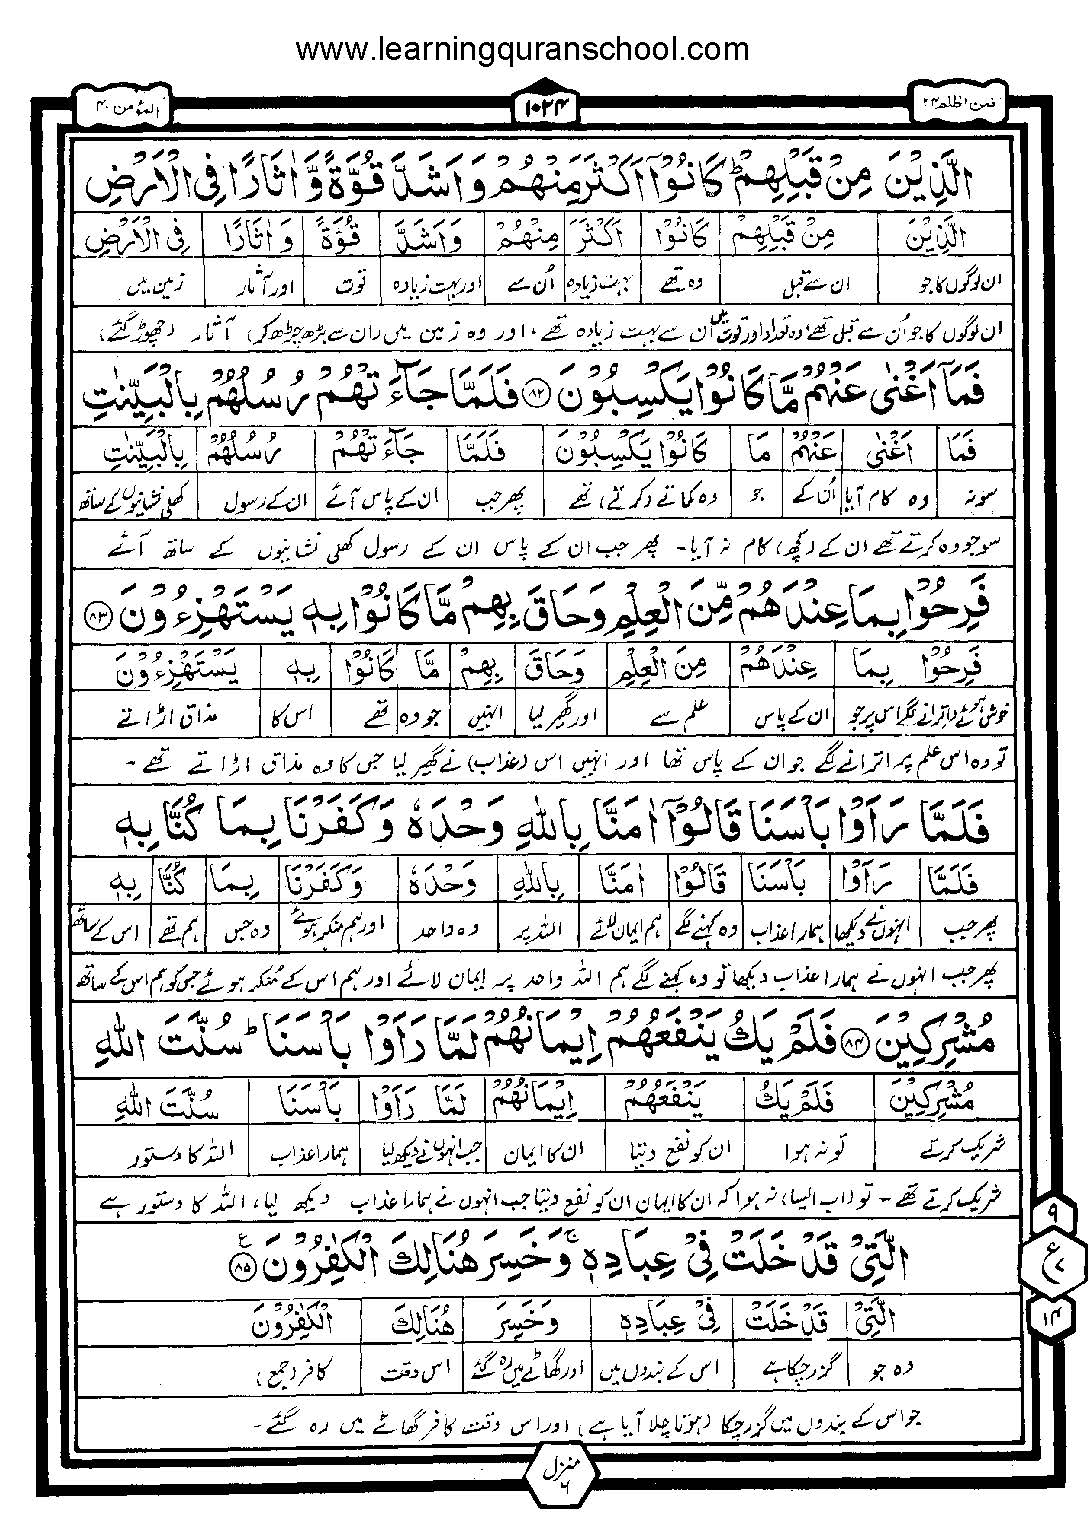 www.learningquranschool.com
المؤمن ۴۰
۱۰۲۴
فمن اظلم ۲۴
الَّذِيْنَ مِنْ قَبْلِهِمْ ؕ كَانُوْۤا اَكْثَرَ مِنْهُمْ وَاَشَدَّ قُوَّةً وَّاٰثَارًا فِى الْاَرْضِ
الَّذِيْنَ مِنْ قَبْلِهِمْ كَانُوْا اَكْثَرَ مِنْهُمْ وَاَشَدَّ قُوَّةً وَاٰثَارًا فِى الْاَرْضِ
ان لوگوں کا جو ان سے قبل وہ تھے بہت زیادہ اُن سے اور بہت زیادہ قوت اور آثار زمین میں
ان لوگوں کا جو اُن سے قبل تھے، وہ تعداد اور قوت میں ان سے بہت زیادہ تھے، اور وہ زمین میں (ان سے بڑھ چڑھ کر) آثار (چھوڑ گئے)
فَمَاۤ اَغْنٰى عَنْهُمْ مَّا كَانُوْا يَكْسِبُوْنَ ﴿۸۲﴾ فَلَمَّا جَآءَتْهُمْ رُسُلُهُمْ بِالْبَيِّنٰتِ
فَمَا اَغْنٰى عَنْهُمْ مَا كَانُوْا يَكْسِبُوْنَ فَلَمَّا جَآءَتْهُمْ رُسُلُهُمْ بِالْبَيِّنٰتِ
سو نہ وہ کام آیا اُن کے جو وہ کماتے (کرتے) تھے پھر جب ان کے پاس آئے ان کے رسول کھلی نشانیوں کے ساتھ
سو جو وہ کرتے تھے ان کے (کچھ) کام نہ آیا۔ پھر جب ان کے پاس ان کے رسول کھلی نشانیوں کے ساتھ آئے
فَرِحُوْا بِمَا عِنْدَهُمْ مِّنَ الْعِلْمِ وَحَاقَ بِهِمْ مَّا كَانُوْا بِهٖ يَسْتَهْزِءُوْنَ ﴿۸۳﴾
فَرِحُوْا بِمَا عِنْدَهُمْ مِنَ الْعِلْمِ وَحَاقَ بِهِمْ مَّا كَانُوْا بِهٖ يَسْتَهْزِءُوْنَ
خوش ہوئے (اترانے لگے) اس پر جو ان کے پاس علم سے اور گھیر لیا انہیں جو وہ تھے اس کا مذاق اڑاتے
تو وہ اس علم پر اترانے لگے جو ان کے پاس تھا اور انہیں اس (عذاب) نے گھیر لیا جس کا وہ مذاق اڑاتے تھے۔
فَلَمَّا رَاَوْا بَاْسَنَا قَالُوْۤا اٰمَنَّا بِاللّٰهِ وَحْدَهٗ وَكَفَرْنَا بِمَا كُنَّا بِهٖ
فَلَمَّا رَاَوْا بَاْسَنَا قَالُوْا اٰمَنَّا بِاللّٰهِ وَحْدَهٗ وَكَفَرْنَا بِمَا كُنَّا بِهٖ
پھر جب انہوں نے دیکھا ہمارا عذاب وہ کہنے لگے ہم ایمان لائے اللہ پر وہ واحد اور ہم منکر ہوئے وہ جس ہم تھے اس کے ساتھ
پھر جب انہوں نے ہمارا عذاب دیکھا تو وہ کہنے لگے ہم اللہ واحد پر ایمان لائے اور ہم اس کے منکر ہوئے جس کو ہم اس کے ساتھ
مُشْرِكِيْنَ ﴿۸۴﴾ فَلَمْ يَكُ يَنْفَعُهُمْ اِيْمَانُهُمْ لَمَّا رَاَوْا بَاْسَنَا ؕ سُنَّتَ اللّٰهِ
مُشْرِكِيْنَ فَلَمْ يَكُ يَنْفَعُهُمْ اِيْمَانُهُمْ لَمَّا رَاَوْا بَاْسَنَا سُنَّتَ اللّٰهِ
شریک کرتے تو نہ ہوا ان کو نفع دیتا ان کا ایمان جب انہوں نے دیکھ لیا ہمارا عذاب اللہ کا دستور
شریک کرتے تھے۔ تو (اب ایسا) نہ ہوا کہ ان کا ایمان ان کو نفع دیتا جب انہوں نے ہمارا عذاب دیکھ لیا، اللہ کا دستور ہے
الَّتِىْ قَدْ خَلَتْ فِىْ عِبَادِهٖ ۚ وَخَسِرَ هُنَالِكَ الْكٰفِرُوْنَ ﴿۸۵﴾ ع
الَّتِىْ قَدْ خَلَتْ فِىْ عِبَادِهٖ وَخَسِرَ هُنَالِكَ الْكٰفِرُوْنَ
وہ جو گزر چکا ہے اس کے بندوں میں اور گھاٹے میں رہ گئے اس وقت کافر (جمع)
جو اس کے بندوں میں گزر چکا (ہوتا چلا آیا ہے) اور اس وقت کافر گھاٹے میں رہ گئے۔
۹
ع
۱۴
منزل ۶